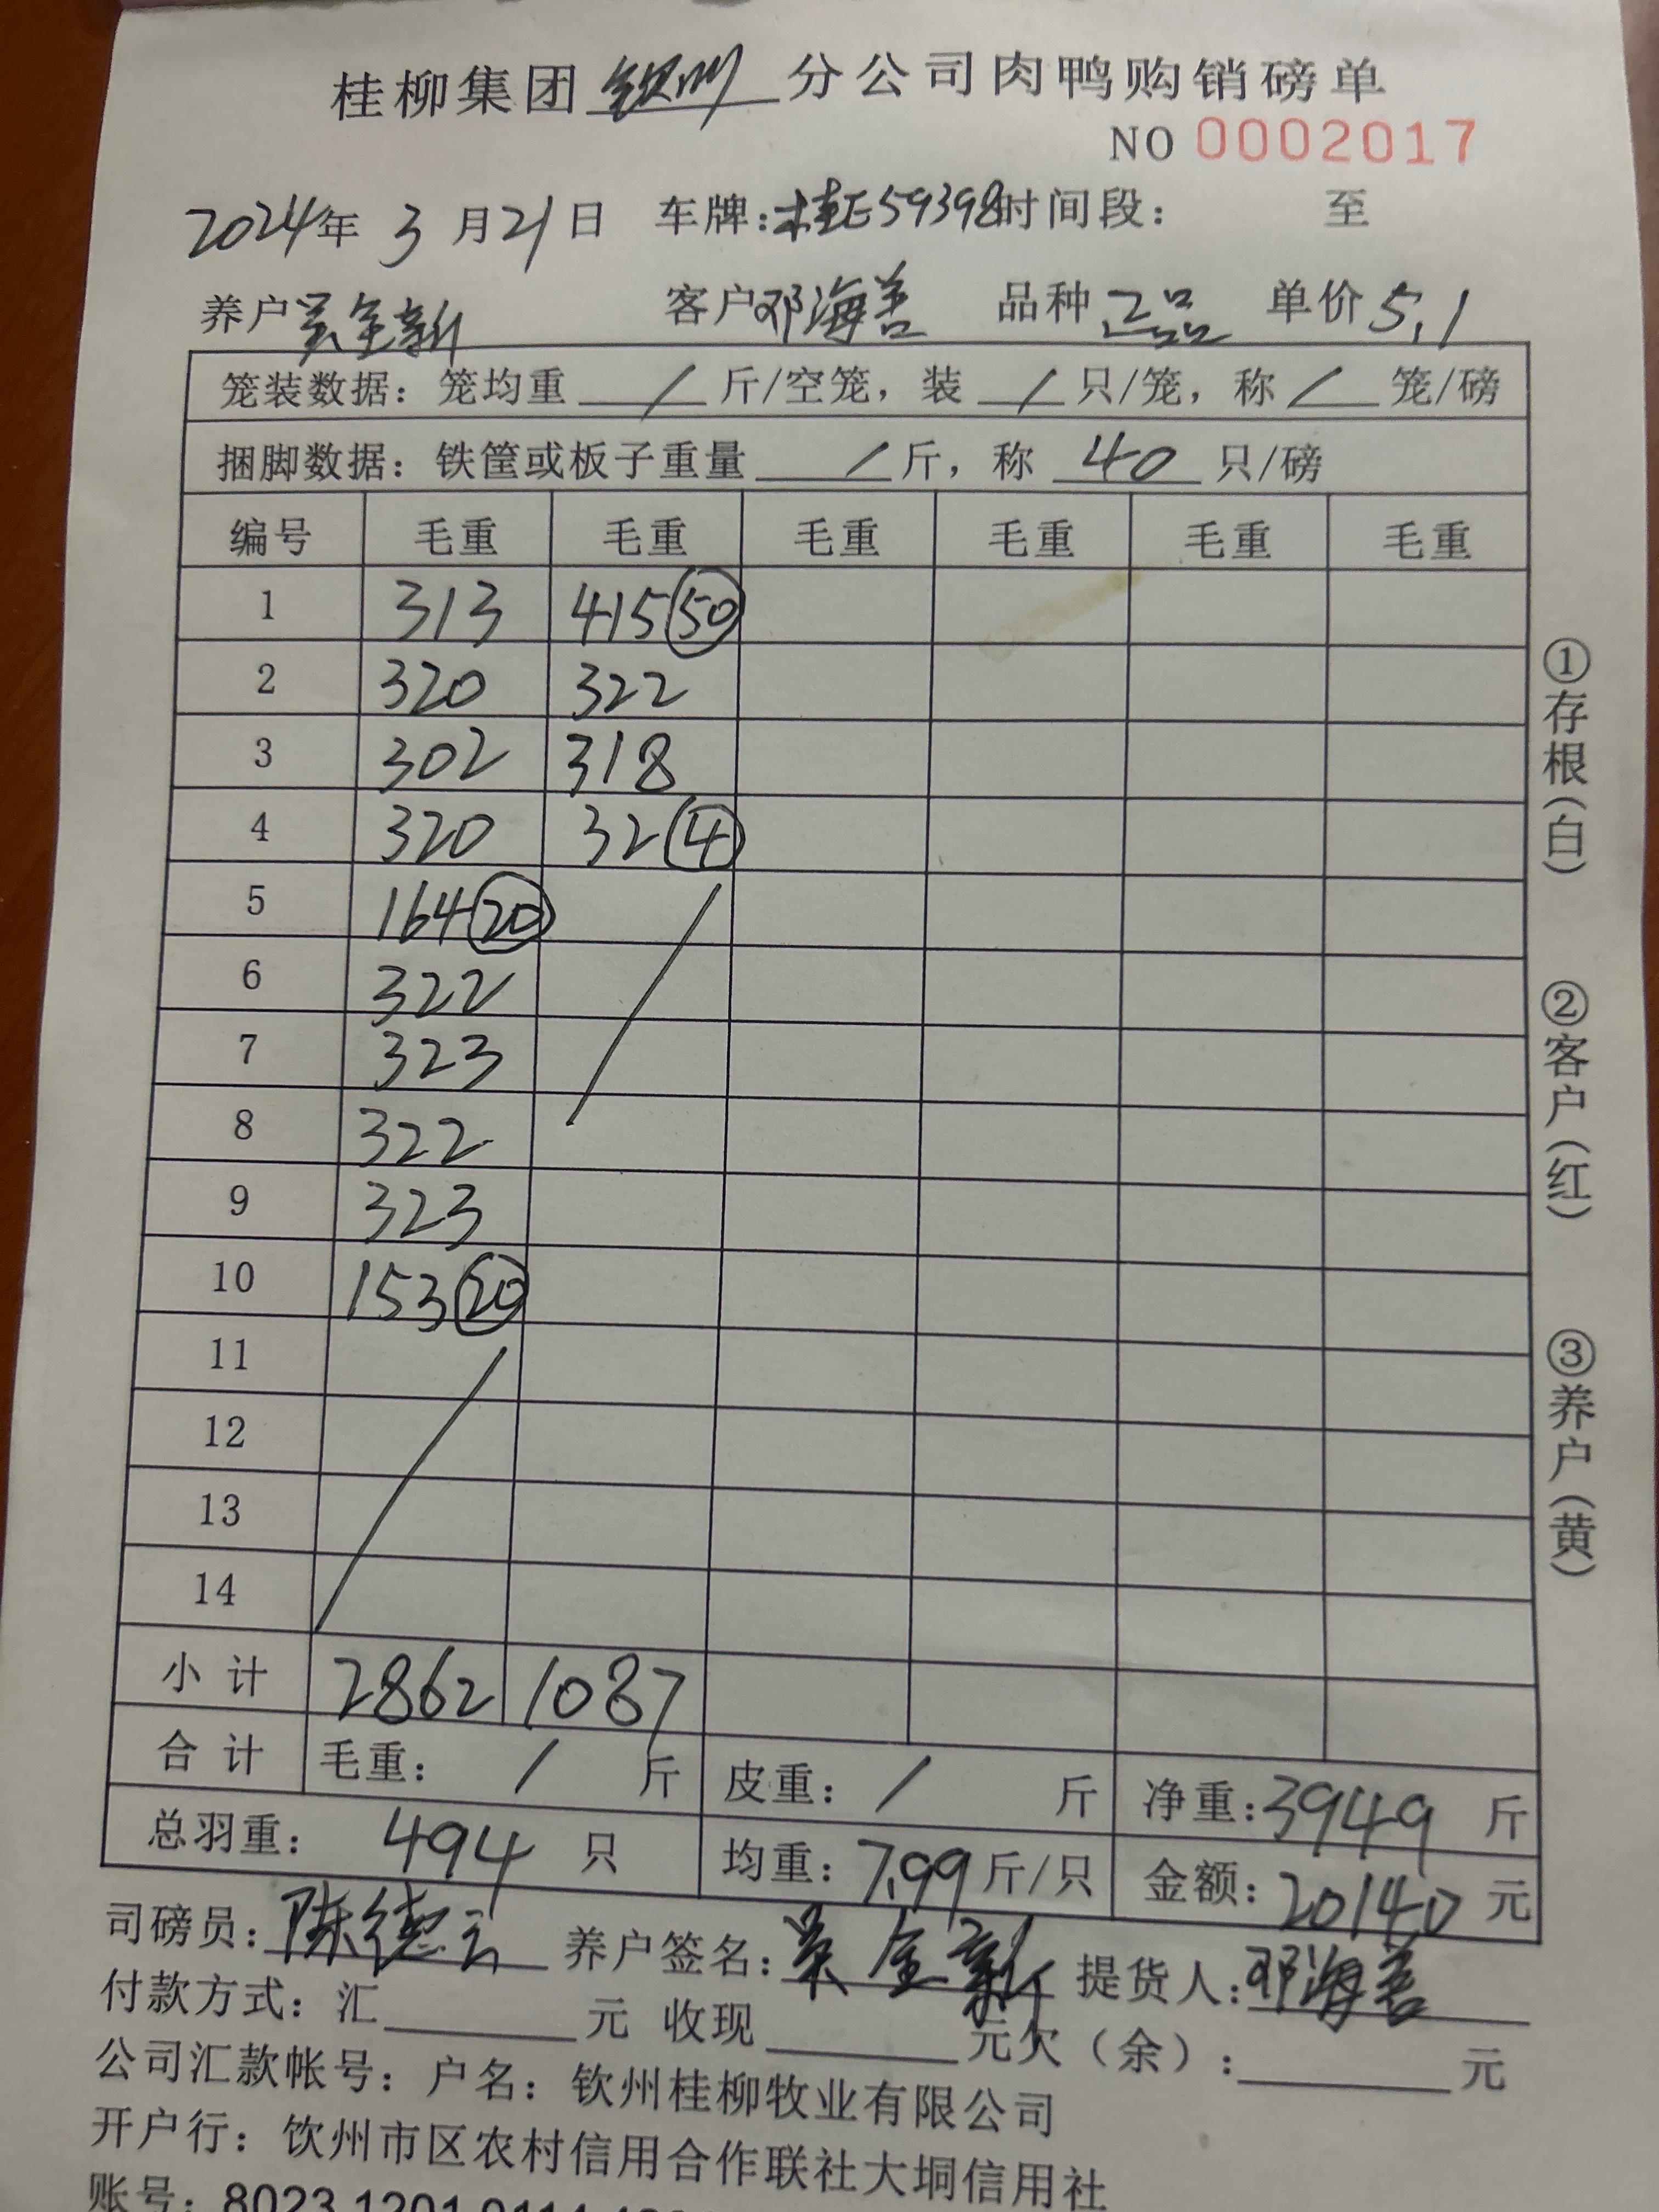 桂柳集团 钦州 分公司肉鸭购销磅单
NO 0002017
2024年 3 月 21 日 车牌：桂E59398 时间段： 至
养户 吴金新 客户 邓海善 品种 正品 单价 5.1
笼装数据：笼均重 / 斤/空笼，装 / 只/笼，称 / 笼/磅
捆脚数据：铁筐或板子重量 / 斤，称 40 只/磅
编号 毛重 毛重 毛重 毛重 毛重 毛重
1 313 415 50
2 320 322
3 302 318
4 320 32 4
5 164 20
6 322
7 323
8 322
9 323
10 153 20
11
12
13
14
小 计 2862 1087
合 计 毛重： / 斤 皮重： / 斤 净重：3949 斤
总羽重： 494 只 均重：7.99 斤/只 金额：20140 元
司磅员：陈德云 养户签名：吴金新 提货人：邓海善
付款方式：汇 元 收现 元欠（余）： 元
公司汇款帐号：户名：钦州桂柳牧业有限公司
开户行：钦州市区农村信用合作联社大垌信用社
账号：8023 1201 0114
①存根（白）
②客户（红）
③养户（黄）